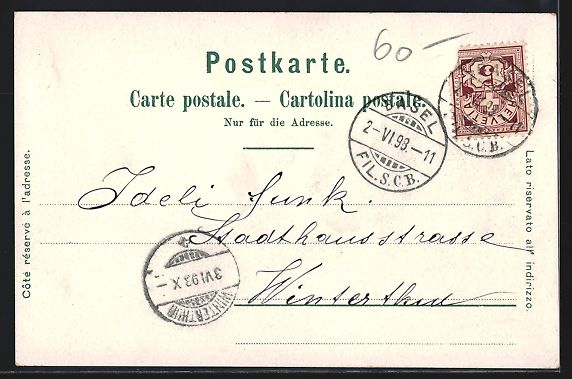 60 —
Postkarte.
Carte postale. — Cartolina postale.
Nur für die Adresse.
BASEL
2-VI.98-11
FIL. S.C.B.
5
HELVETIA
S.C.B.
Côté réservé à l'adresse.
Lato riservato all' indirizzo.
Ideli Funk.
Stadthausstrasse
Winterthur
WINTERTHUR
3 VI 98 X